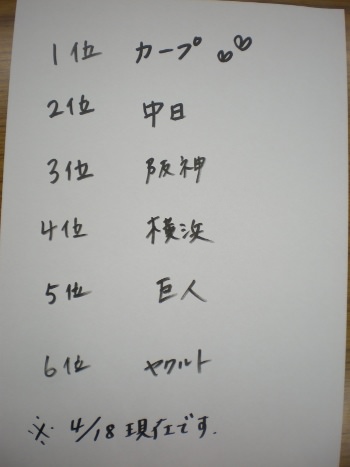 1位 カープ
2位 中日
3位 阪神
4位 横浜
5位 巨人
6位 ヤクルト
※ 4/18 現在です.